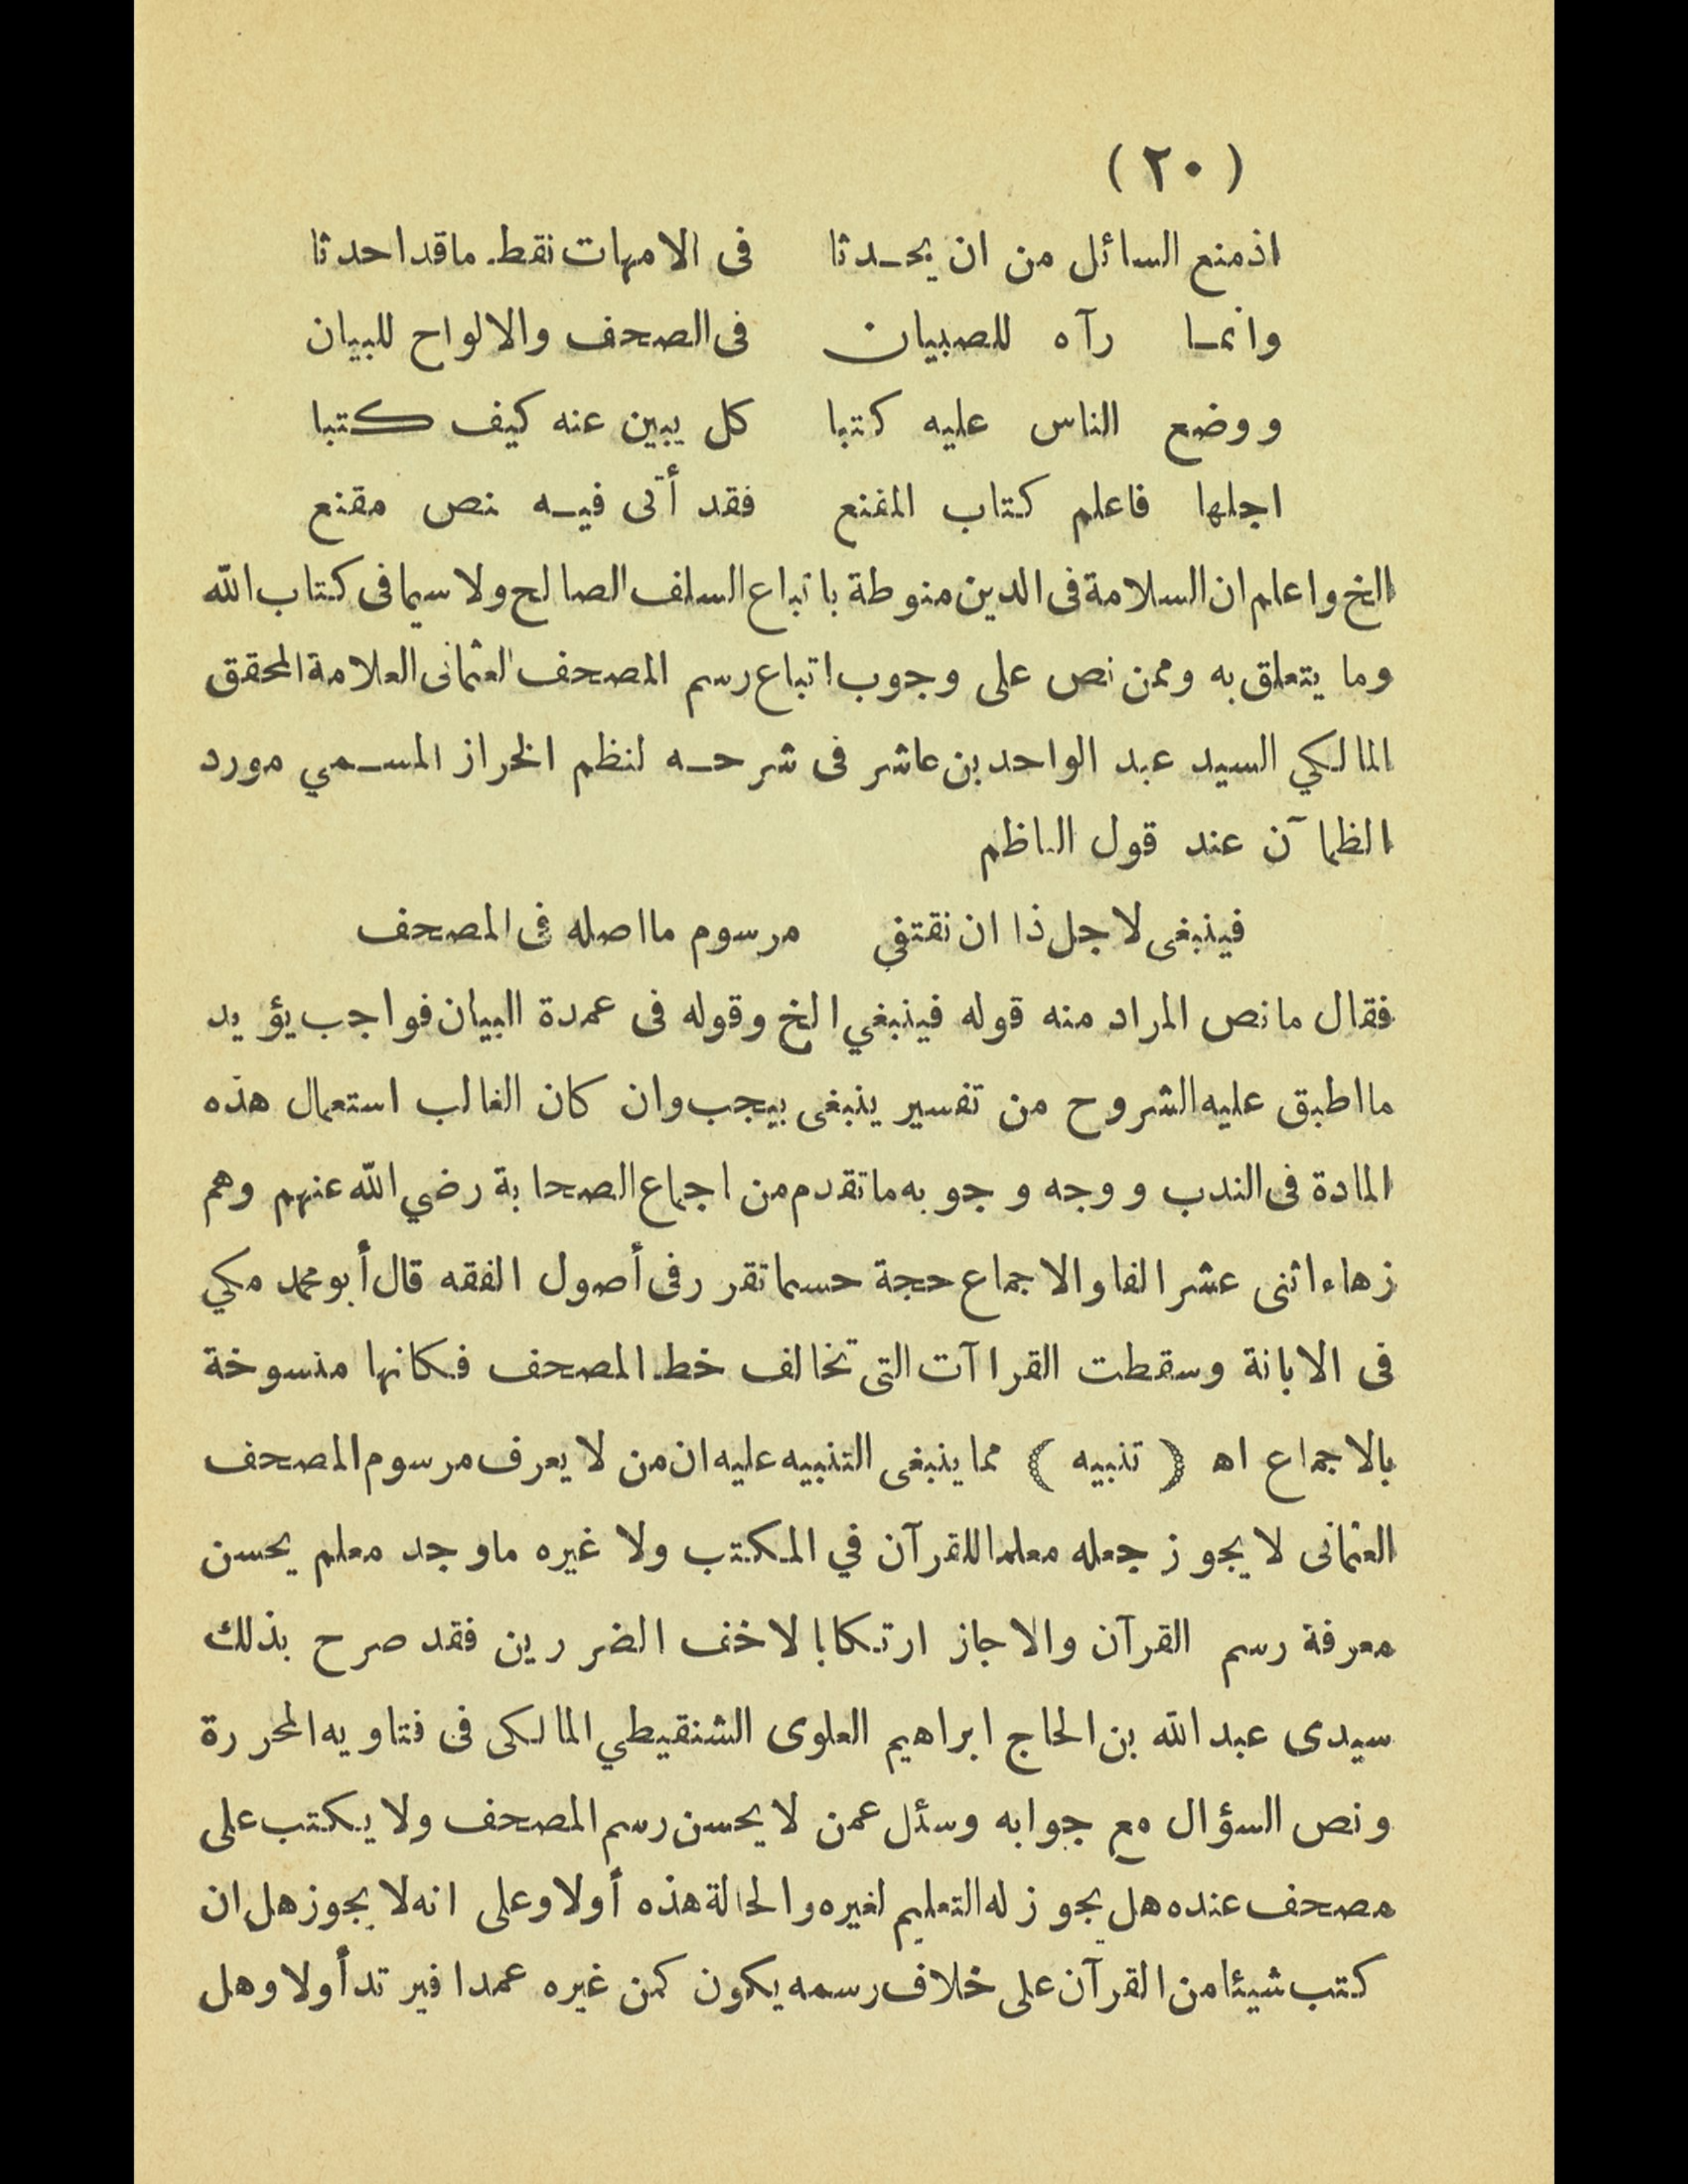 ( ٢٠ )
اذ منع السائل من ان يحدثا فى الامهات نقط ما قد احدثا
وانما رآه للصبيان فى الصحف والالواح للبيان
ووضع الناس عليه كتبا كل يبين عنه كيف كتبا
اجلها فاعلم كتاب المقنع فقد أتى فيه نص مقنع
الخ واعلم ان السلامة فى الدين منوطة باتباع السلف الصالح ولا سيما فى كتاب الله
وما يتعلق به وممن نص على وجوب اتباع رسم المصحف العثمانى العلامة المحقق
المالكي السيد عبد الواحد بن عاشر فى شرحه لنظم الخراز المسمي مورد
الظمآن عند قول الناظم
فينبغى لاجل ذا ان نقتفي مرسوم ما اصله فى المصحف
فقال ما نص المراد منه قوله فينبغي الخ وقوله فى عمدة البيان فواجب يؤيد
ما اطبق عليه الشروح من تفسير ينبغى بيجب وان كان الغالب استعمال هذه
المادة فى الندب ووجه وجوبه ما تقدم من اجماع الصحابة رضي الله عنهم وهم
زهاء اثنى عشر الفا والاجماع حجة حسما تقرر فى أصول الفقه قال أبو محمد مكي
فى الابانة وسقطت القراآت التى تخالف خط المصحف فكانها منسوخة
بالاجماع اه ( تنبيه ) مما ينبغى التنبيه عليه ان من لا يعرف مرسوم المصحف
العثمانى لا يجوز جعله معلما للقرآن في المكتب ولا غيره ما وجد معلم يحسن
معرفة رسم القرآن والا جاز ارتكابا لاخف الضررين فقد صرح بذلك
سيدى عبد الله بن الحاج ابراهيم العلوى الشنقيطي المالكى فى فتاويه المحررة
ونص السؤال مع جوابه وسئل عمن لا يحسن رسم المصحف ولا يكتب على
مصحف عنده هل يجوز له التعليم لغيره والحالة هذه أولا وعلى انه لا يجوز هل ان
كتب شيئا من القرآن على خلاف رسمه يكون كمن غيره عمدا فيرتد أولا وهل